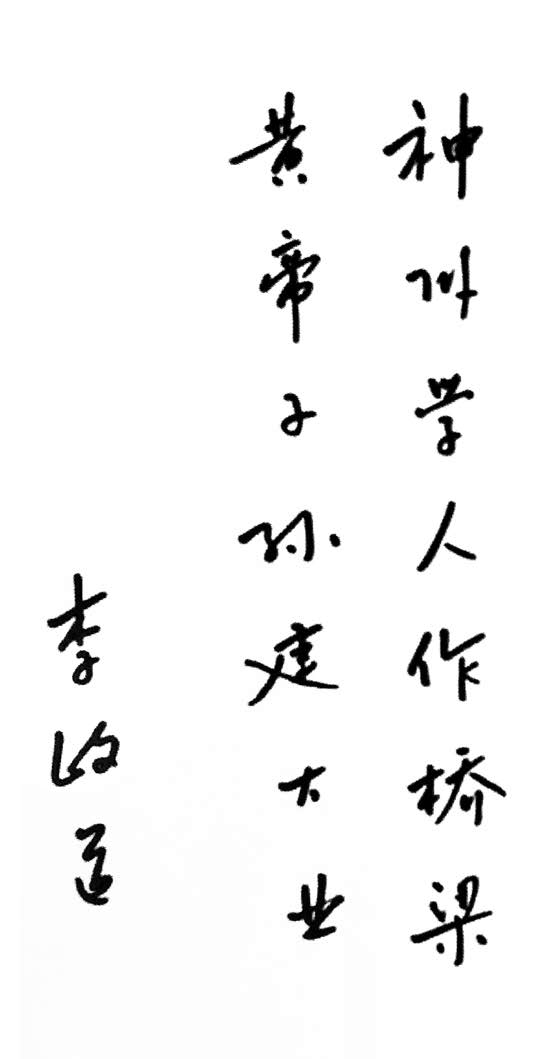 神州学人作桥梁
黄帝子孙建大业
李政道